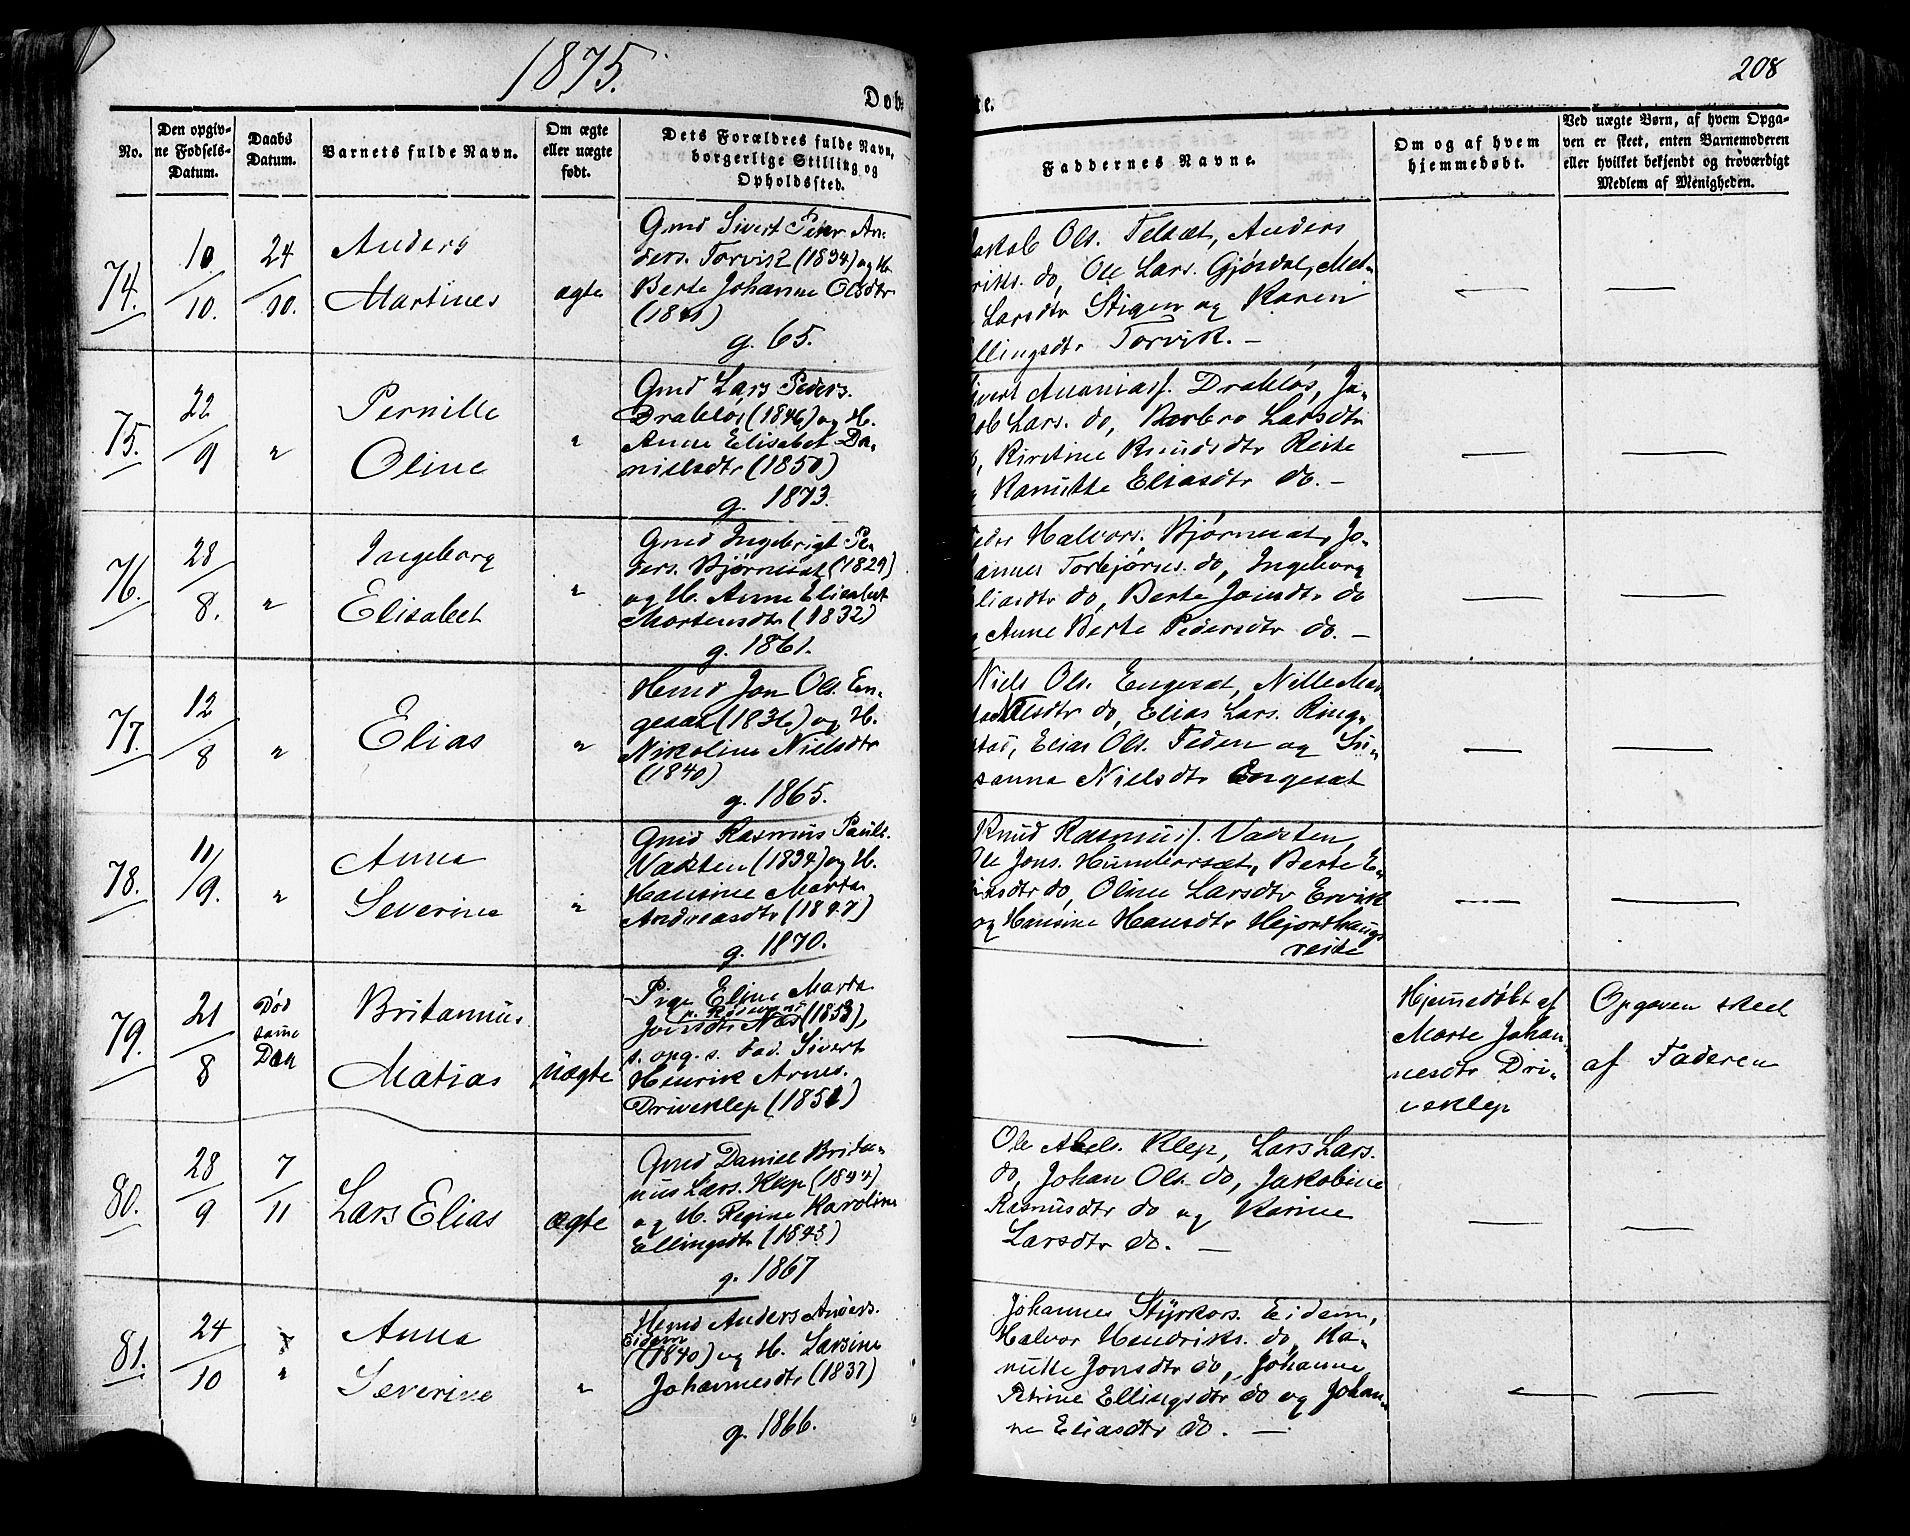 1875.
208
Døb-
te.
No.
Den opgiv-
ne Fødsels-
Datum.
Daabs
Datum.
Barnets fulde Navn.
Om ægte
eller uægte
født.
Dets Forældres fulde Navn,
borgerlige Stilling og
Opholdssted.
Faddernes Navne.
Om og af hvem
hjemmedøbt.
Ved uægte Børn, af hvem Opga-
ven er skeet, enten Barnemoderen
eller hvilket bekjendt og troværdigt
Medlem af Menigheden.
74.
10/10.
24/10.
Anders
Martines
ægte
Gmd Sivert Peter An-
ders. Torvik (1834) og H.
Berte Johanne Olsdtr
g. 65.
Jakob Ols. Telsæt, Anders
riks. do, Ole Lars. Gjøsdal, Met-
Larsdtr Stigen og Karen
Ellingsdtr Torvik. –
—
—
75.
22/9
"
Pernille
Oline
"
Gmd Lars Peders.
Drabløs (1846) og H.
Anne Elisabet Da-
nielsdtr (1850)
g. 1873.
Sivert Ananiass. Drabløs, Ja-
kob Lars. do, Barbro Larsdtr
do, Kirstine Knudsdtr Reite
og Kanutte Eliasdtr do. –
—
—
76.
28/8.
"
Ingeborg
Elisabet
"
Gmd Ingebrigt Pe-
ders. Bjørnsæt (1829)
og H. Anne Elisabet
Mortensdtr (1832)
g. 1861.
Peder Halvors. Bjørnsæt, Jo-
hannes Torbjørns. do, Ingeborg
Eliasdtr do, Berte Jonsdtr do
og Anne Berte Pedersdtr do. –
—
—
77.
12/8
"
Elias
"
Hmd Jon Ols. En-
gesæt (1836) og H.
Nikoline Nielsdtr
(1840)
g. 1865.
Niels Ols. Engesæt, Nille Mar
Nilsdtr do, Elias Lars. Ring-
stad, Elias Ols. Feden og Su-
sanna Nielsdtr Engesæt
—
—
78.
11/9.
"
Anna
Severine
"
Gmd Rasmus Pauls.
Vadsten (1834) og H.
Hansine Marta
Andreasdtr (1847)
g. 1870.
Knud Rasmuss. Vadsten,
Ole Jons. Humborsæt, Berte E-
liasdtr do, Oline Larsdtr Ervik
og Hansine Hansdtr Hjorthaugs
reite
—
—
79.
21/8
Død
samme
Dag
Britannus
Matias
uægte
Pige Eline Marta
Jonsdtr Næs (1853),
s. opg. s. Fad. Sivert
Henrik Arnes.
Driveklep (1851)
—
Hjemmedøbt af
Marte Johan-
nesdtr Dri-
veklep
Opgaven skeet
af Faderen
80.
28/9
7/11
Lars Elias
ægte
Gmd Daniel Britan-
nus Lars. Klep (1844)
og H. Regine Karoline
Ellingsdtr (1843)
g. 1867
Ole Abels. Klep, Lars Lars.
do, Johan Ols. do, Jakobine
Rasmusdtr do og Karine
Larsdtr do. —
—
—
81.
24/10
"
Anna
Severine
"
Hmd Anders Anders.
Eidem
(1840) og H. Larsine
Johannesdtr (1837)
g. 1866.
Johannes Styrkors. Eidem,
Halvor Hendriks. do, Ka-
nutte Jonsdtr do, Johanne
Petrine Ellingsdtr do og Johan-
ne Eliasdtr do. —
—
—